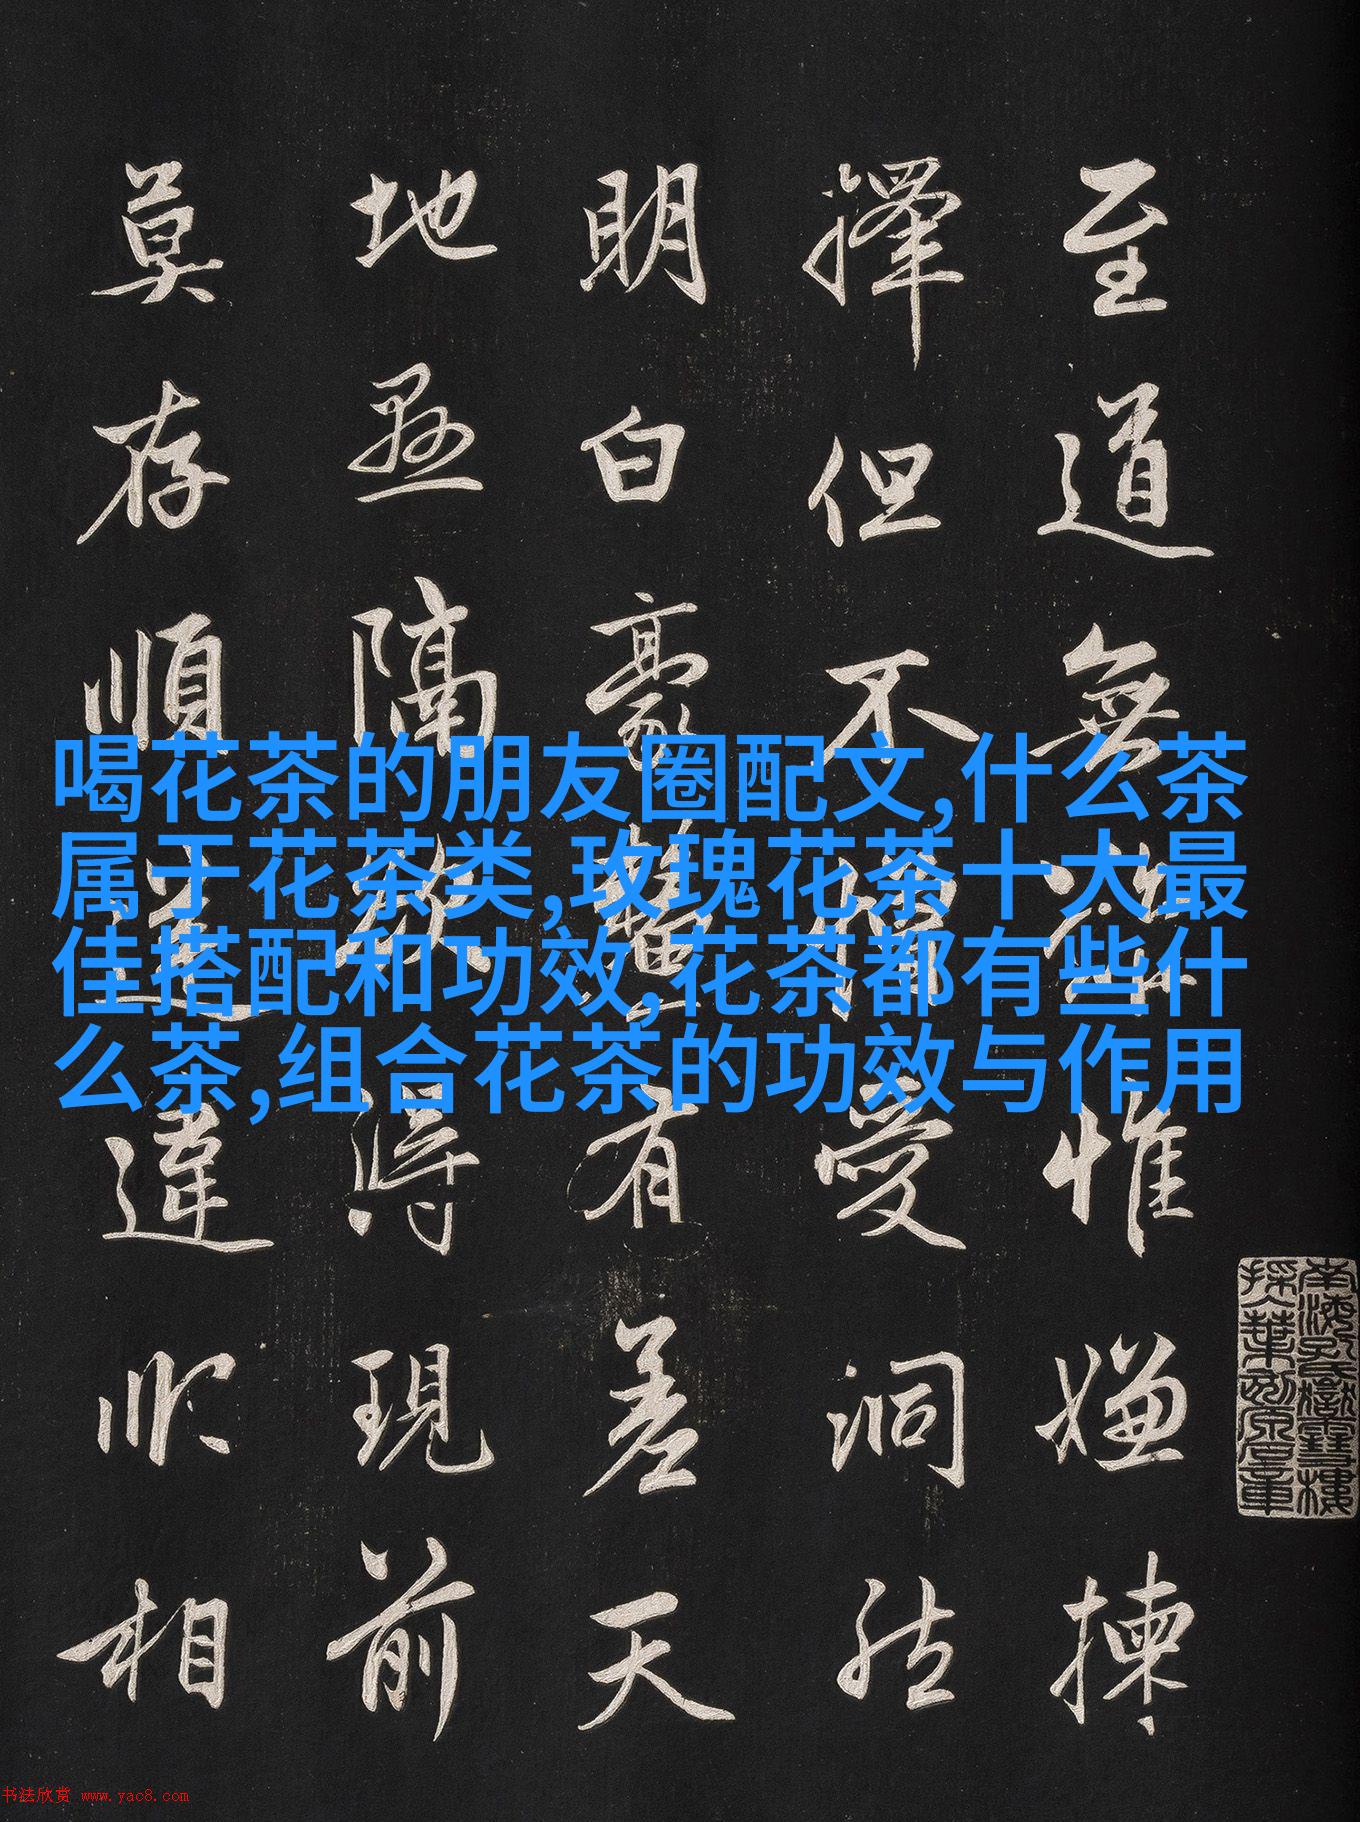 至道無難惟嫌揀
擇但不憎愛洞然
明白豪釐有差天
地懸隔欲得現前
莫存順逆違順相
喝花茶的朋友圈配文,什么茶
属于花茶类,玫瑰花茶十大最
佳搭配和功效,花茶都有些什
么茶,组合花茶的功效与作用
南海孔氏嶽雪樓
书法欣赏 www.yac8.com